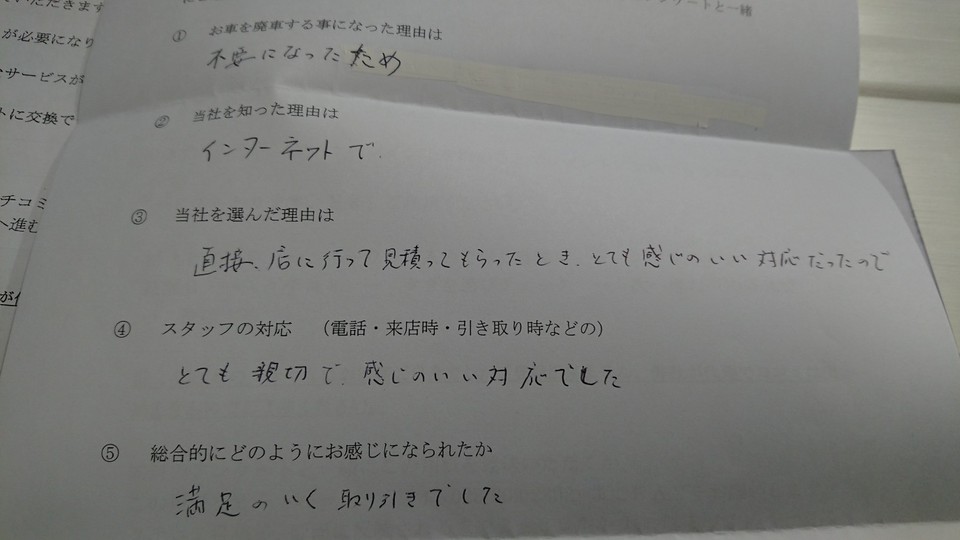 ケートと一緒
① お車を廃車する事になった理由は
不要になったため
② 当社を知った理由は
インターネットで.
③ 当社を選んだ理由は
直接、店に行って見積ってもらったとき、とても感じのいい対応だったので
④ スタッフの対応 （電話・来店時・引き取り時などの）
とても親切で、感じのいい対応でした
⑤ 総合的にどのようにお感じになられたか
満足のいく取り引きでした
いただきます
が必要になり
なサービスが
トに交換で
チコミ
へ進む